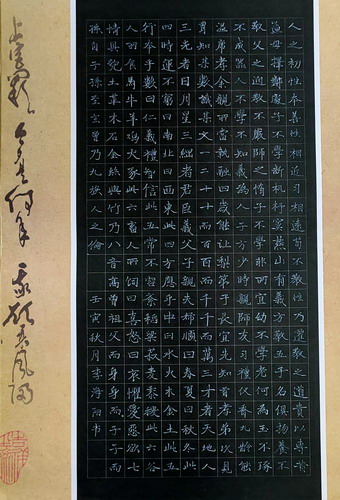 人之初性本善性相近習相遠苟不教性乃遷教之道貴以專昔
孟母擇鄰處子不學斷機杼竇燕山有義方教五子名俱揚養不
教父之過教不嚴師之惰子不學非所宜幼不學老何為玉不琢
不成器人不學不知義為人子方少時親師友習禮儀香九齡能
溫席孝於親所當執融四歲能讓梨弟於長宜先知首孝弟次見
聞知某數識某文一而十十而百百而千千而萬三才者天地人
三光者日月星三綱者君臣義父子親夫婦順曰春夏曰秋冬此
四時運不窮曰南北曰西東此四方應乎中曰水火木金土此五
行本乎數曰仁義禮智信此五常不容紊稻粱菽麥黍稷此六穀
人所食馬牛羊雞犬豕此六畜人所飼曰喜怒曰哀懼愛惡欲七
情具匏土革木石金絲與竹乃八音高曾祖父而身身而子子而
孫自子孫至玄曾乃九族人之倫 壬寅秋月李海陽书